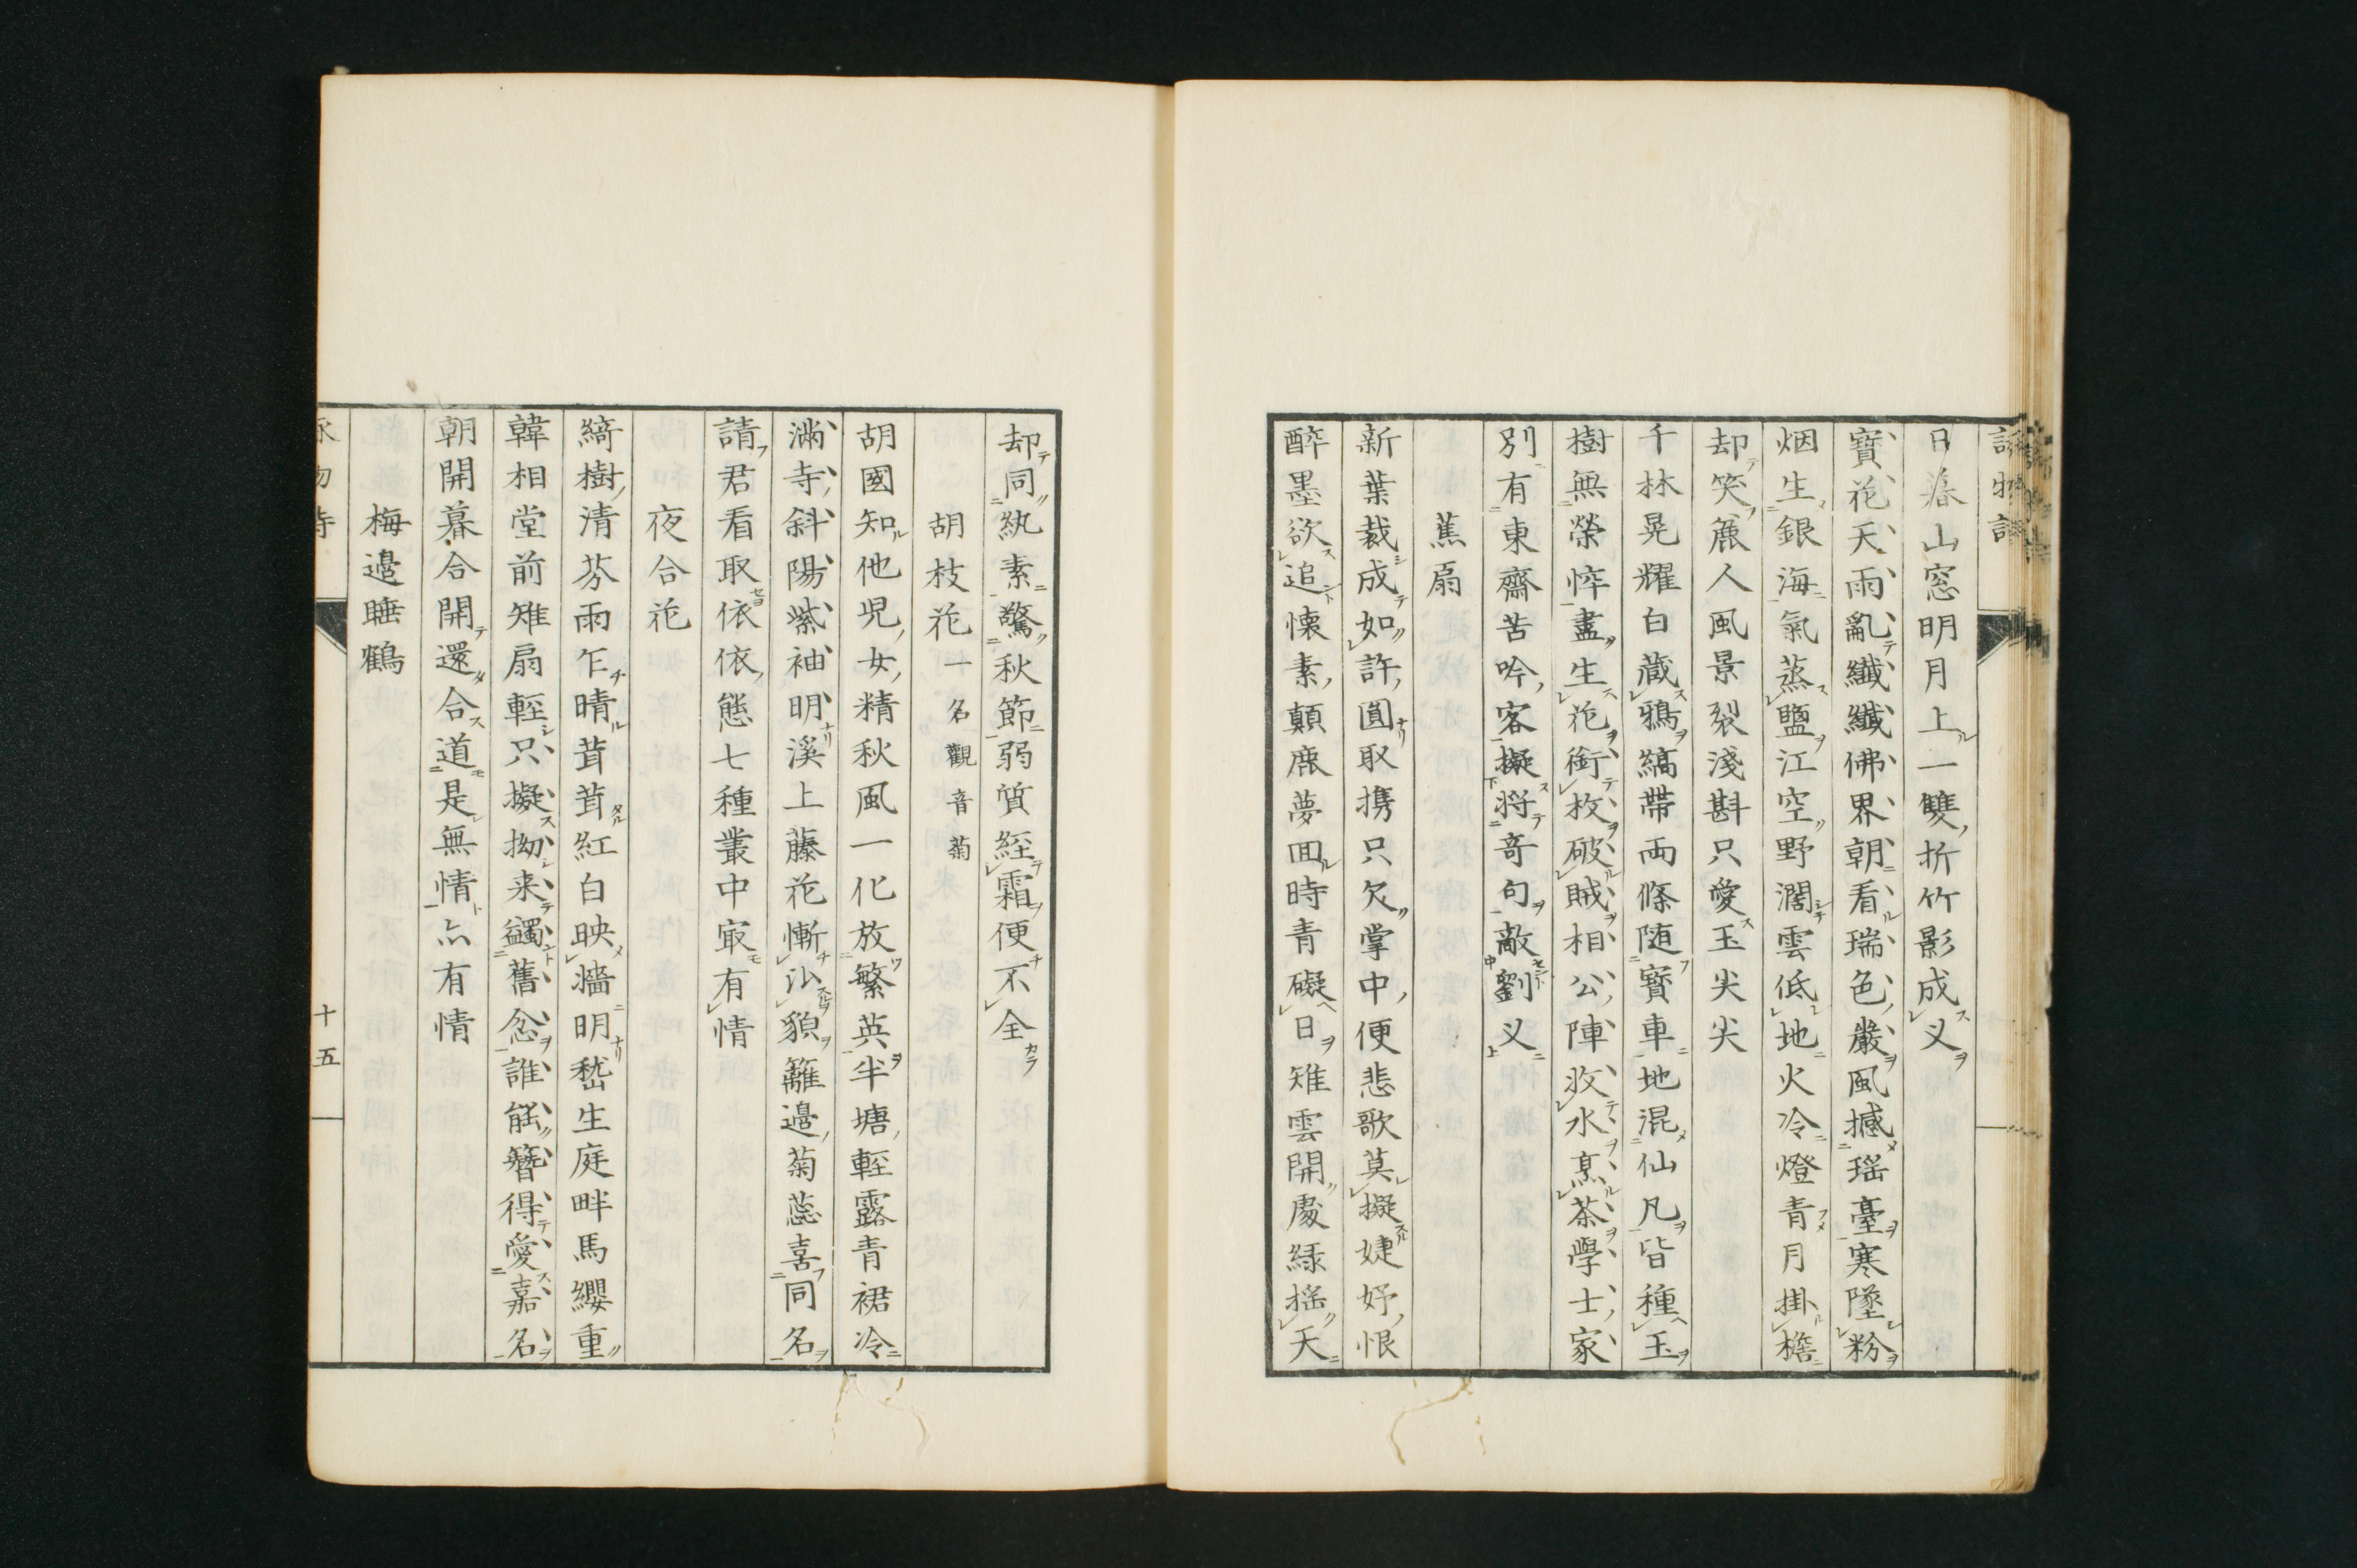 日落山窓明月上一雙折竹影成义
寶花天雨亂纎纎佛界朝看瑞色嚴風撼瑶臺寒墜粉
烟生銀海氣蒸鹽江空野濶雲低地火冷燈青月掛檐
却笑麄人風景裂淺斟只愛玉尖尖
千林晃耀白蔵鴉縞帶両條随寳車地混仙凡皆種玉
樹無榮悴盡生花銜枚破賊相公陣汲水烹茶學士家
別有東齋苦吟客擬将竒句敵劉义
蕉扇
新葉裁成如許圓取携只欠掌中便悲歌莫擬婕妤恨
醉墨欲追懐素顛鹿夢囬時青礙日雉雲開處緑揺天
却同紈素驚秋節弱質經霜便不全
胡枝花一名觀音菊
胡國知他児女精秋風一化放繁英半塘輕露青裙冷
滿寺斜陽紫袖明溪上藤花慚汃貌籬邉菊蕊喜同名
請君看取依依態七種叢中㝡有情
夜合花
綺樹清芬雨乍晴茸茸紅白映牆明嵆生庭畔馬纓重
韓相堂前雉扇輕只擬拗来蠲舊忿誰能簪得愛嘉名
朝開暮合開還合道是無情亦有情
梅邉睡鶴
十五